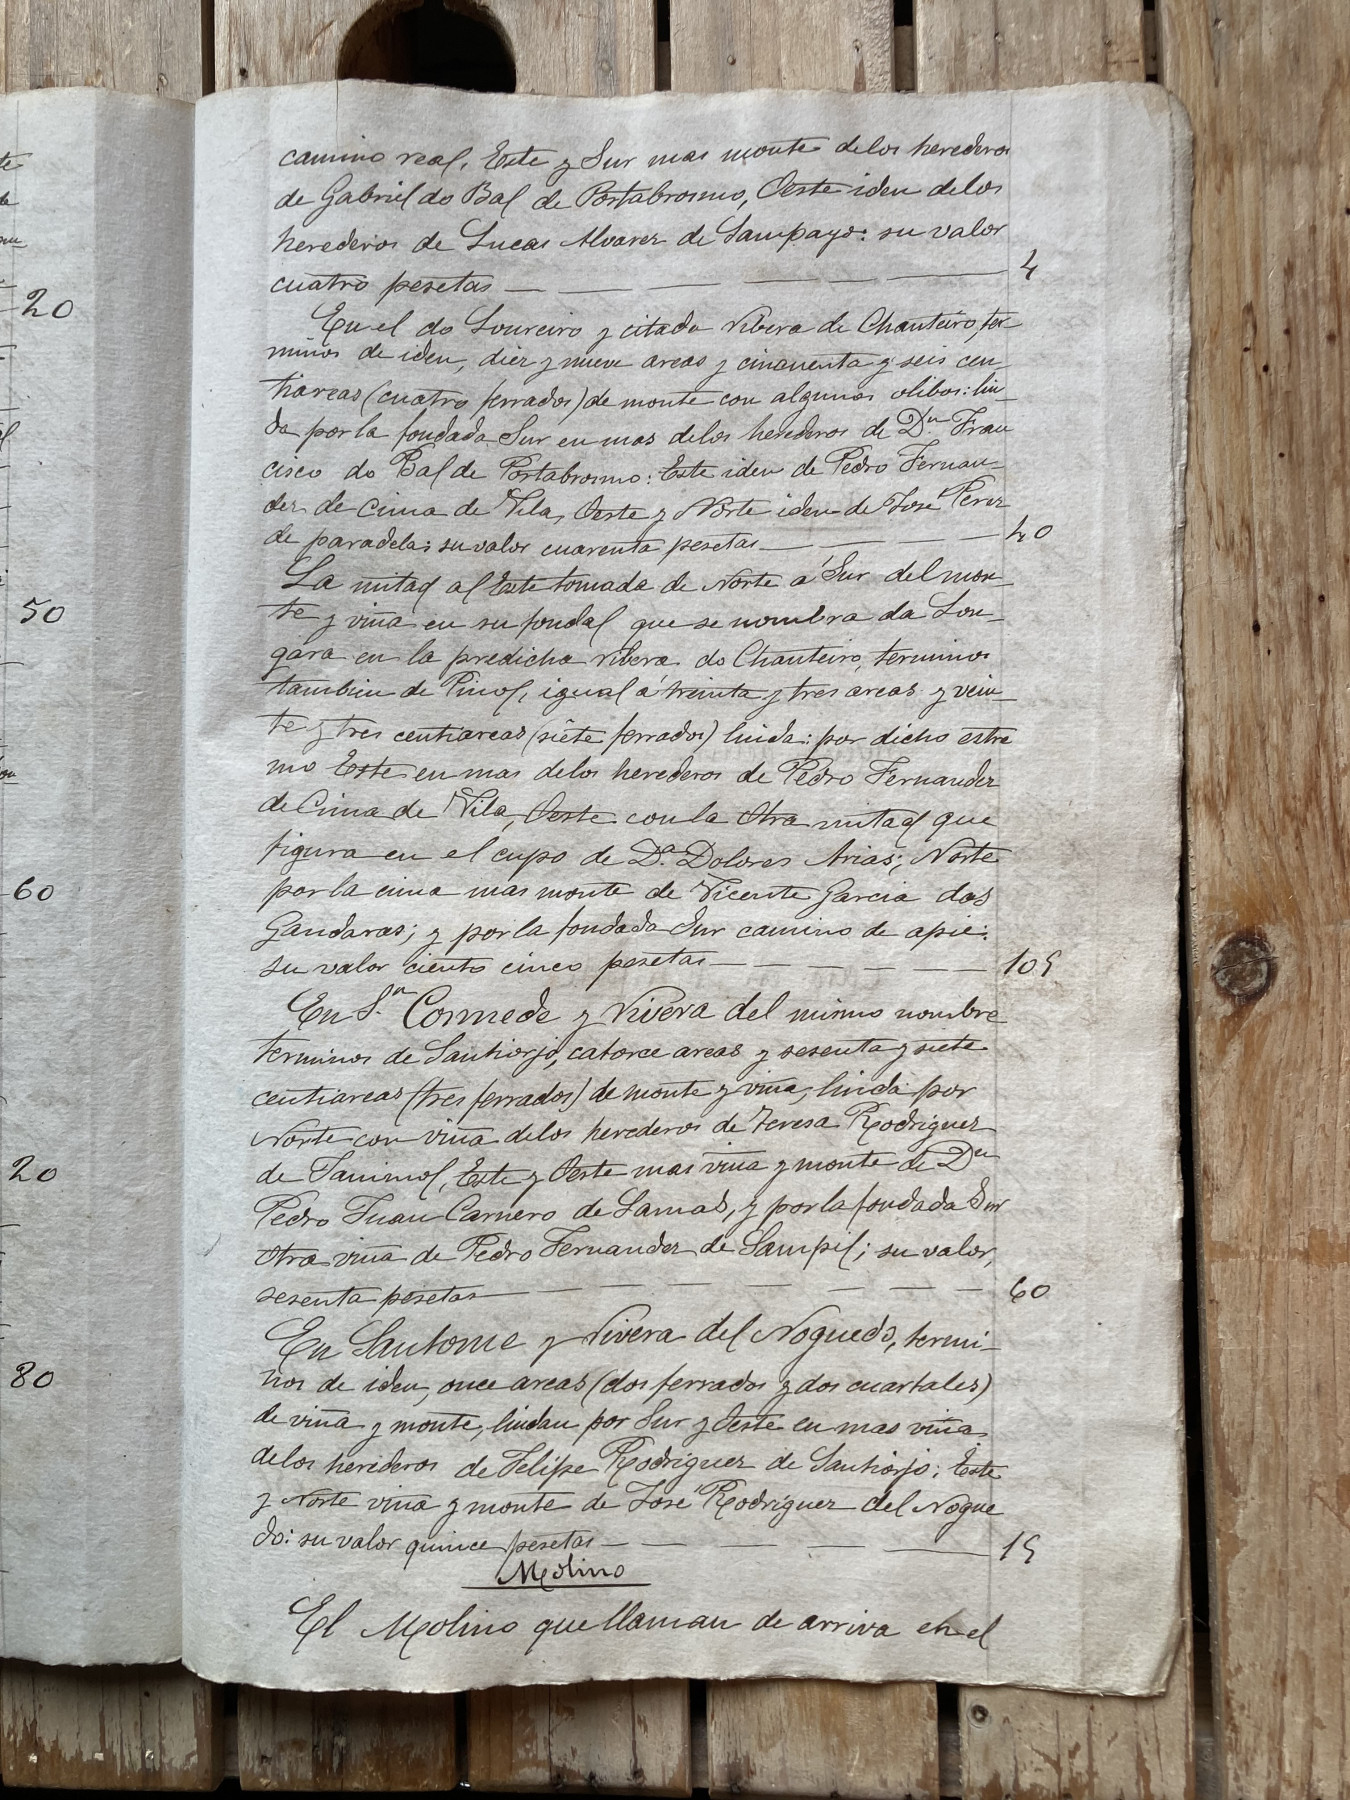 camino real, Este y Sur mas monte delos herederos
de Gabriel do Bal de Portabromo, Oeste iden delos
herederos de Lucas Alvarez de Sampayo: su valor
cuatro pesetas — — — — — — 4
En el do Loureiro y citada ribera de Chanteiro, ter-
minos de iden, diez y nueve areas y cincuenta y seis cen-
tiareas (cuatro ferrados) de monte con algunos olibos: lin-
da por la fondada Sur en mas delos herederos de Dn. Fran
cisco do Bal de Portabromo: Este iden de Pedro Fernan-
dez de Cima de Vila, Oeste y Norte iden de José Perez
de paradela; su valor cuarenta pesetas — — — — 40
La mitad al Este tomada de Norte á Sur del mon-
te y viña en su fondal que se nombra da Lon-
gara en la predicha ribera do Chanteiro, terminos
tambien de Pinol, igual á treinta y tres areas y vein-
te y tres centiareas (siete ferrados) linda: por dicho estre
mo Este en mas delos herederos de Pedro Fernandez
de Cima de Vila, Oeste con la Otra mitad que
figura en el cupo de Da. Dolores Arias; Norte
por la cima mas monte de Vicente Garcia das
Gandaras; y por la fondada Sur camino de apie:
su valor ciento cinco pesetas — — — — — 105
En Sn. Cosmede y Rivera del mismo nombre
terminos de Santiorjo, catorce areas y sesenta y siete
centiareas (tres ferrados) de monte y viña, linda por
Norte con viña delos herederos de Teresa Rodriguez
de Tanimol, Este y Oeste mas viña y monte de Dn
Pedro Juan Carnero de Lamas, y por la fondada Sur
otra viña de Pedro Fernandez de Sampil; su valor,
sesenta pesetas — — — — — — 60
En Santome y Rivera del Noguedo, termi-
nos de iden, once areas (dos ferrados y dos cuartales)
de viña y monte, lindan por Sur y Oeste en mas viña
delos herederos de Felipe Rodriguez de Santiorjo; Este
y Norte viña y monte de José Rodriguez del Nogue
do: su valor quince pesetas — — — — — 15
Molino
El Molino que llaman de arriva en el
20
50
60
20
80